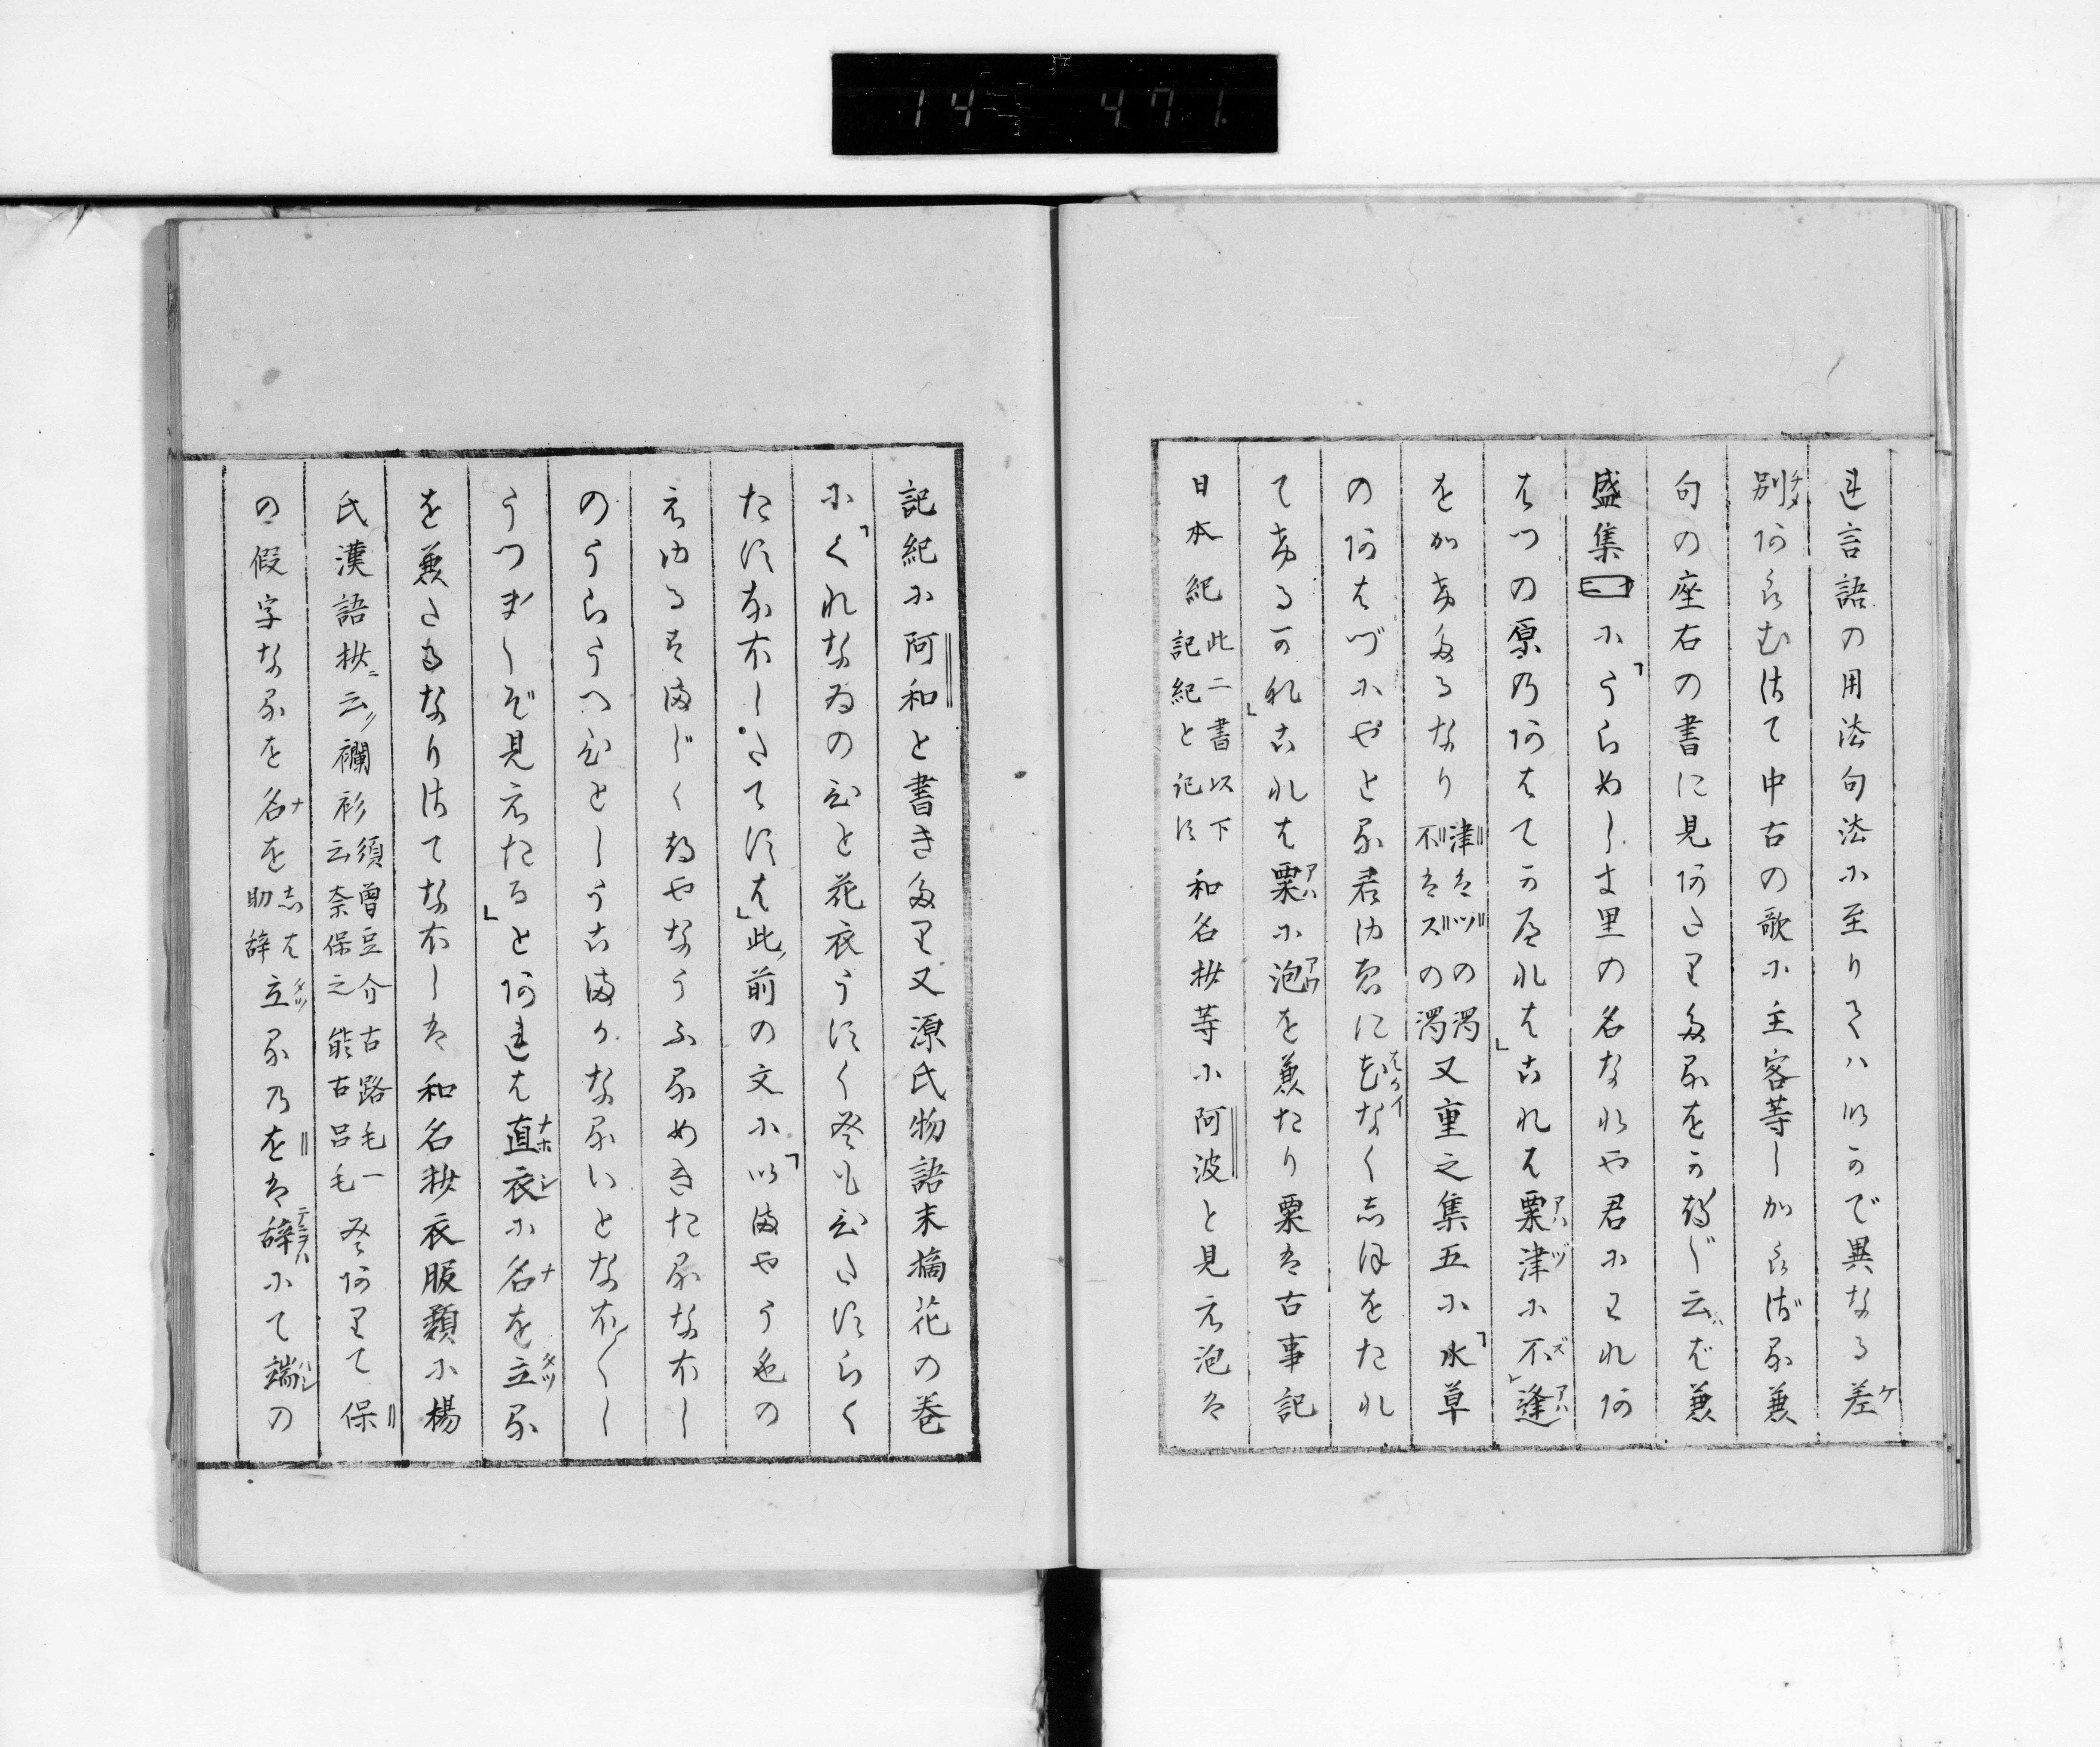 14 471
れ言語の用法句法に至りてハいかで異なる差
別あらむはて中古の歌に主客等しからざる兼
句の座右の書に見あたりたるをかつ〴〵云はゞ兼
盛集□に「うらめしき里の名なれや君にわれあ
はづの原のあはでかへれは」これは粟津に不逢
をかけたるなり津はヅの濁不はズの濁又重之集五に「水草
のあはづにやとる君ゆゑにむなくしほをたれ
てけるかな」これは粟に泡を兼たり粟は古事記
日本紀此二書以下記紀と記す和名抄等に阿波と見え泡は
記紀に阿和と書きたり又源氏物語末摘花の巻
に「くれなゐのひと花衣うすくともひたすらく
たすなをし立てすは」此前の文に「いまやう色の
えゆるすまじくつやなうふるめきたるなほし
のうらうへひとしうこまかなるいとなほ〳〵し
うつま〴〵ぞ見えたる」とあれは直衣に名を立る
を兼たるなりはてなほしは和名抄衣服類に楊
氏漢語抄云襴衫須曽豆介古路毛一云奈保之能古呂毛とありて保
の假字なるを名をしは助辞立るのをは辞にて端の